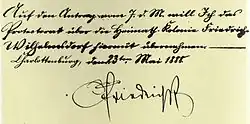 Auf den Antrag vom 7. d. M. will Ich das
Protectorat über die Heimath-Kolonie Friedrich-
Wilhelmsdorf hiermit übernehmen.—
Charlottenburg, den 23ten Mai 1888
Friedrich